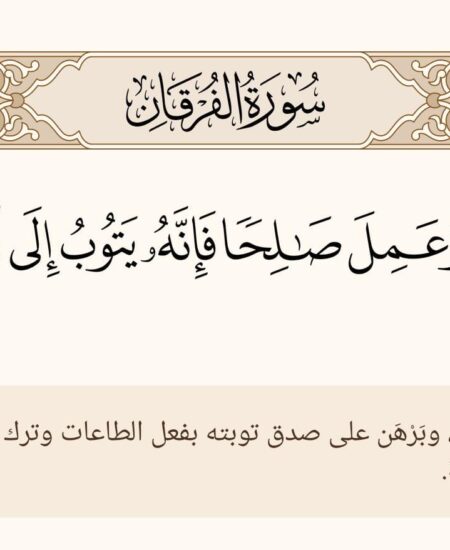 سُورَةُ الفُرْقَانِ
وَعَمِلَ صَٰلِحًا فَإِنَّهُۥ يَتُوبُ إِلَى
، وبَرْهَن على صدق توبته بفعل الطاعات وترك
.